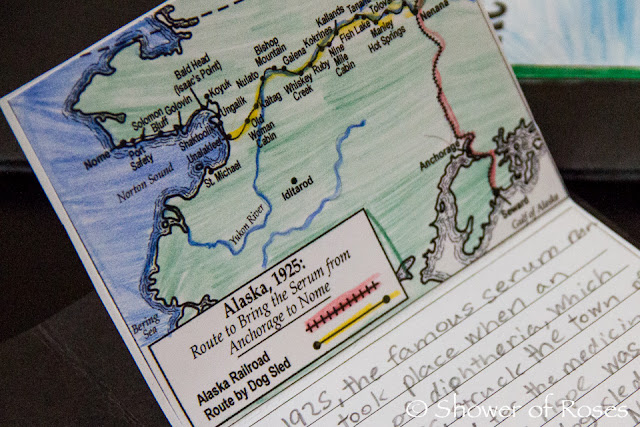 Kallands
Tanana
Tolovana
Nenana
Kokrines
Fish Lake
Manley
Hot Springs
Bishop
Mountain
Galena
Nine
Mile
Cabin
Ruby
Whiskey
Creek
Nulato
Kaltag
Old
Woman
Cabin
Bald Head
(Isaac's Point)
Koyuk
Ungalik
Golovin
Solomon
Bluff
Shaktoolik
Nome
Port
Safety
Unalakleet
Norton Sound
St. Michael
Iditarod
Yukon River
Anchorage
Seward
Gulf of Alaska
Bering
Sea
Alaska, 1925:
Route to Bring the Serum from
Anchorage to Nome
Alaska Railroad
Route by Dog Sled
1925, the famous serum run
took place when an
diphtheria, which
struck the town
the medicine
was
© Shower of Roses